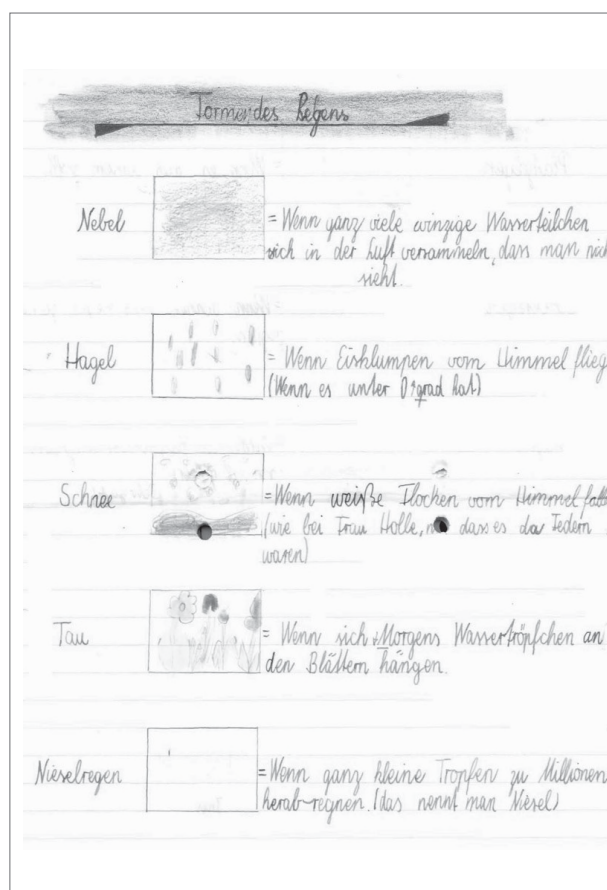 Formen des Regens
Nebel
= Wenn ganz viele winzige Wasserteilchen
sich in der Luft versammeln, dass man nich
sieht.
Hagel
= Wenn Eisklumpen vom Himmel flieg
(Wenn es unter 0°grad hat)
Schnee
= Wenn weiße Flocken vom Himmel fall
(wie bei Frau Holle, dass es da Federn
waren)
Tau
= Wenn sich Morgens Wassertröpfchen an
den Blättern hängen.
Nieselregen
= Wenn ganz kleine Tropfen zu Millionen
herab-regnen. (das nennt man Niesel)